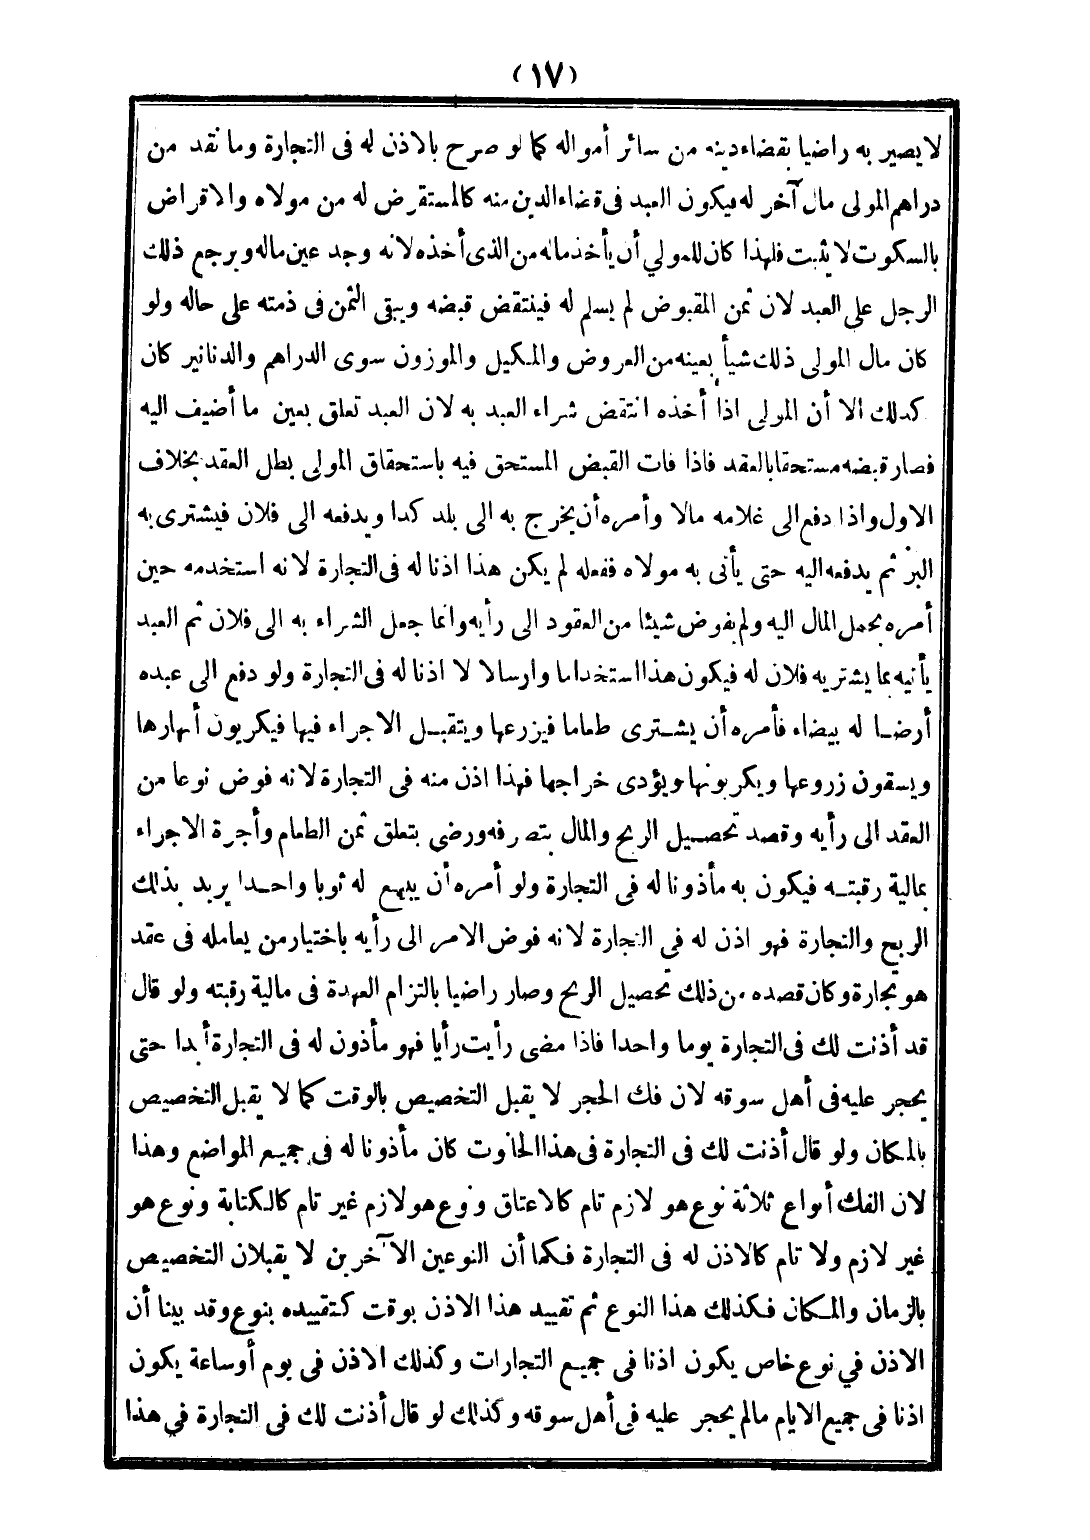 (١٧)
لا يصير به راضيا بقضاء دينه من سائر أمواله كما لو صرح بالاذن له فى التجارة وما نقد من
دراهم المولى مال آخر له فيكون العبد فى قضاء الدين منه كالمستقرض له من مولاه والاقراض
بالسكوت لا يثبت فلهذا كان للمولي أن يأخذ ماله من الذى أخذه لانه وجد عين ماله ويرجع ذلك
الرجل علي العبد لان ثمن المقبوض لم يسلم له فينتقض قبضه ويبقى الثمن فى ذمته على حاله ولو
كان مال المولى ذلك شيأ بعينه من العروض والمكيل والموزون سوى الدراهم والدنانير كان
كذلك الا أن المولى اذا أخذه انتقض شراء العبد به لان العبد تعلق بعين ما أضيف اليه
فصار قبضه مستحقا بالعقد فاذا فات القبض المستحق فيه باستحقاق المولى بطل العقد بخلاف
الاول واذا دفع الى غلامه مالا وأمره أن يخرج به الى بلد كذا ويدفعه الى فلان فيشترى به
البز ثم يدفعه اليه حتى يأتى به مولاه ففعله لم يكن هذا اذنا له فى التجارة لانه استخدمه حين
أمره بحمل المال اليه ولم يفوض شيئا من العقود الى رأيه وانما جعل الشراء به الى فلان ثم العبد
يأتيه بما يشتريه فلان له فيكون هذا استخداما وارسالا لا اذنا له فى التجارة ولو دفع الى عبده
أرضا له بيضاء فأمره أن يشترى طعاما فيزرعها ويتقبل الاجراء فيها فيكريون أنهارها
ويسقون زروعها ويكربونها ويؤدى خراجها فهذا اذن منه فى التجارة لانه فوض نوعا من
العقد الى رأيه وقصد تحصيل الربح والمال بتصرفه ورضي بتعلق ثمن الطعام وأجرة الاجراء
بمالية رقبته فيكون به مأذونا له فى التجارة ولو أمره أن يبيع له ثوبا واحدا يريد بذلك
الربح والتجارة فهو اذن له فى التجارة لانه فوض الامر الى رأيه باختيار من يعامله فى عقد
هو تجارة وكان قصده من ذلك تحصيل الربح وصار راضيا بالتزام العهدة فى مالية رقبته ولو قال
قد أذنت لك فى التجارة يوما واحدا فاذا مضى رأيت رأيا فهو مأذون له فى التجارة أبدا حتى
يحجر عليه فى أهل سوقه لان فك الحجر لا يقبل التخصيص بالوقت كما لا يقبل التخصيص
بالمكان ولو قال أذنت لك فى التجارة فى هذا الحانوت كان مأذونا له فى جميع المواضع وهذا
لان الفك أنواع ثلاثة نوع هو لازم تام كالاعتاق ونوع هو لازم غير تام كالكتابة ونوع هو
غير لازم ولا تام كالاذن له فى التجارة فكما أن النوعين الآخرين لا يقبلان التخصيص
بالزمان والمكان فكذلك هذا النوع ثم تقييد هذا الاذن بوقت كتقييده بنوع وقد بينا أن
الاذن في نوع خاص يكون اذنا فى جميع التجارات وكذلك الاذن فى يوم أو ساعة يكون
اذنا فى جميع الايام ما لم يحجر عليه فى أهل سوقه وكذلك لو قال أذنت لك فى التجارة في هذا